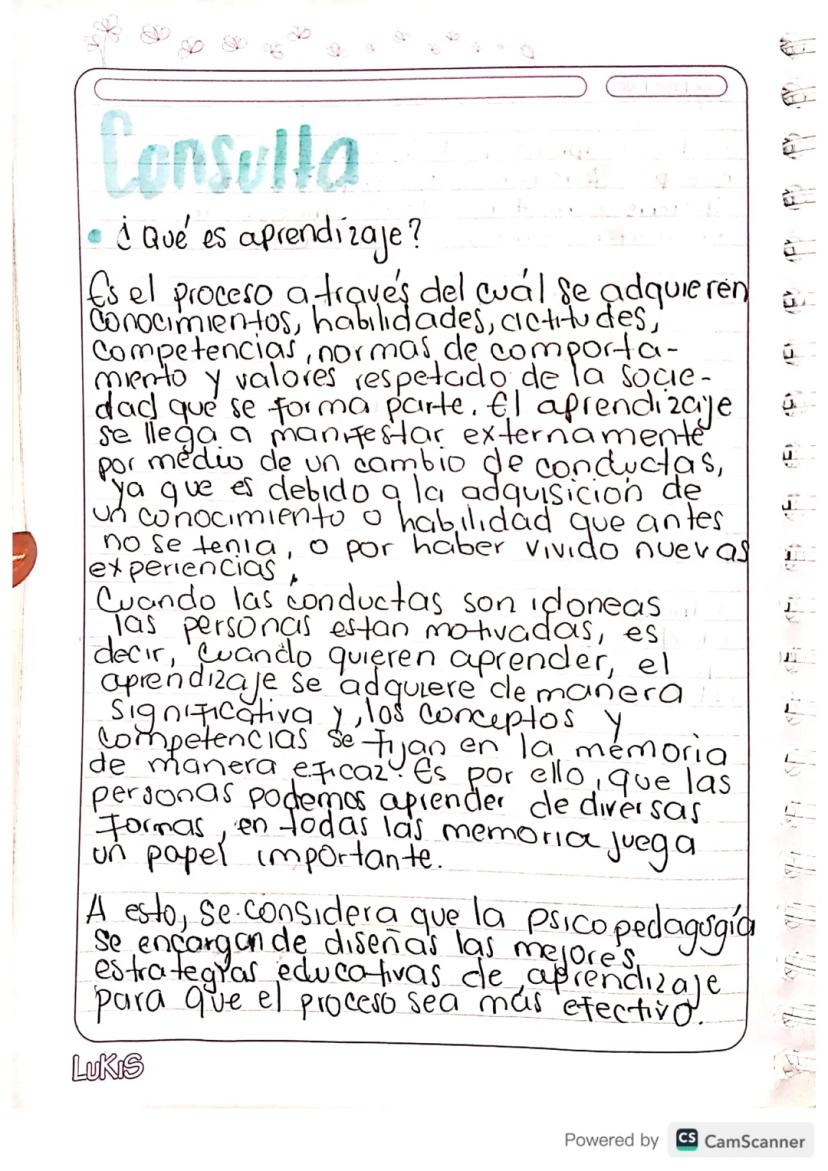 Consulta
• ¿Qué es aprendizaje?
Es el proceso a través del cuál se adquieren
conocimientos, habilidades, actitudes,
competencias, normas de comporta-
miento y valores respetado de la socie-
dad que se forma parte. El aprendizaje
se llega a manifestar externamente
por medio de un cambio de conductas,
ya que es debido a la adquisición de
un conocimiento o habilidad que antes
no se tenia, o por haber vivido nuevas
experiencias,
Cuando las conductas son idoneas
las personas estan motivadas, es
decir, cuando quieren aprender, el
aprendizaje se adquiere de manera
significativa y, los conceptos y
competencias se fijan en la memoria
de manera eficaz. Es por ello, que las
personas podemos aprender de diversas
formas, en todas las memoria juega
un papel importante.
A esto, se considera que la psicopedagogía
se encargan de diseñas las mejores
estrategias educativas de aprendizaje
para que el proceso sea más efectivo.
LUKIS
Powered by CS CamScanner